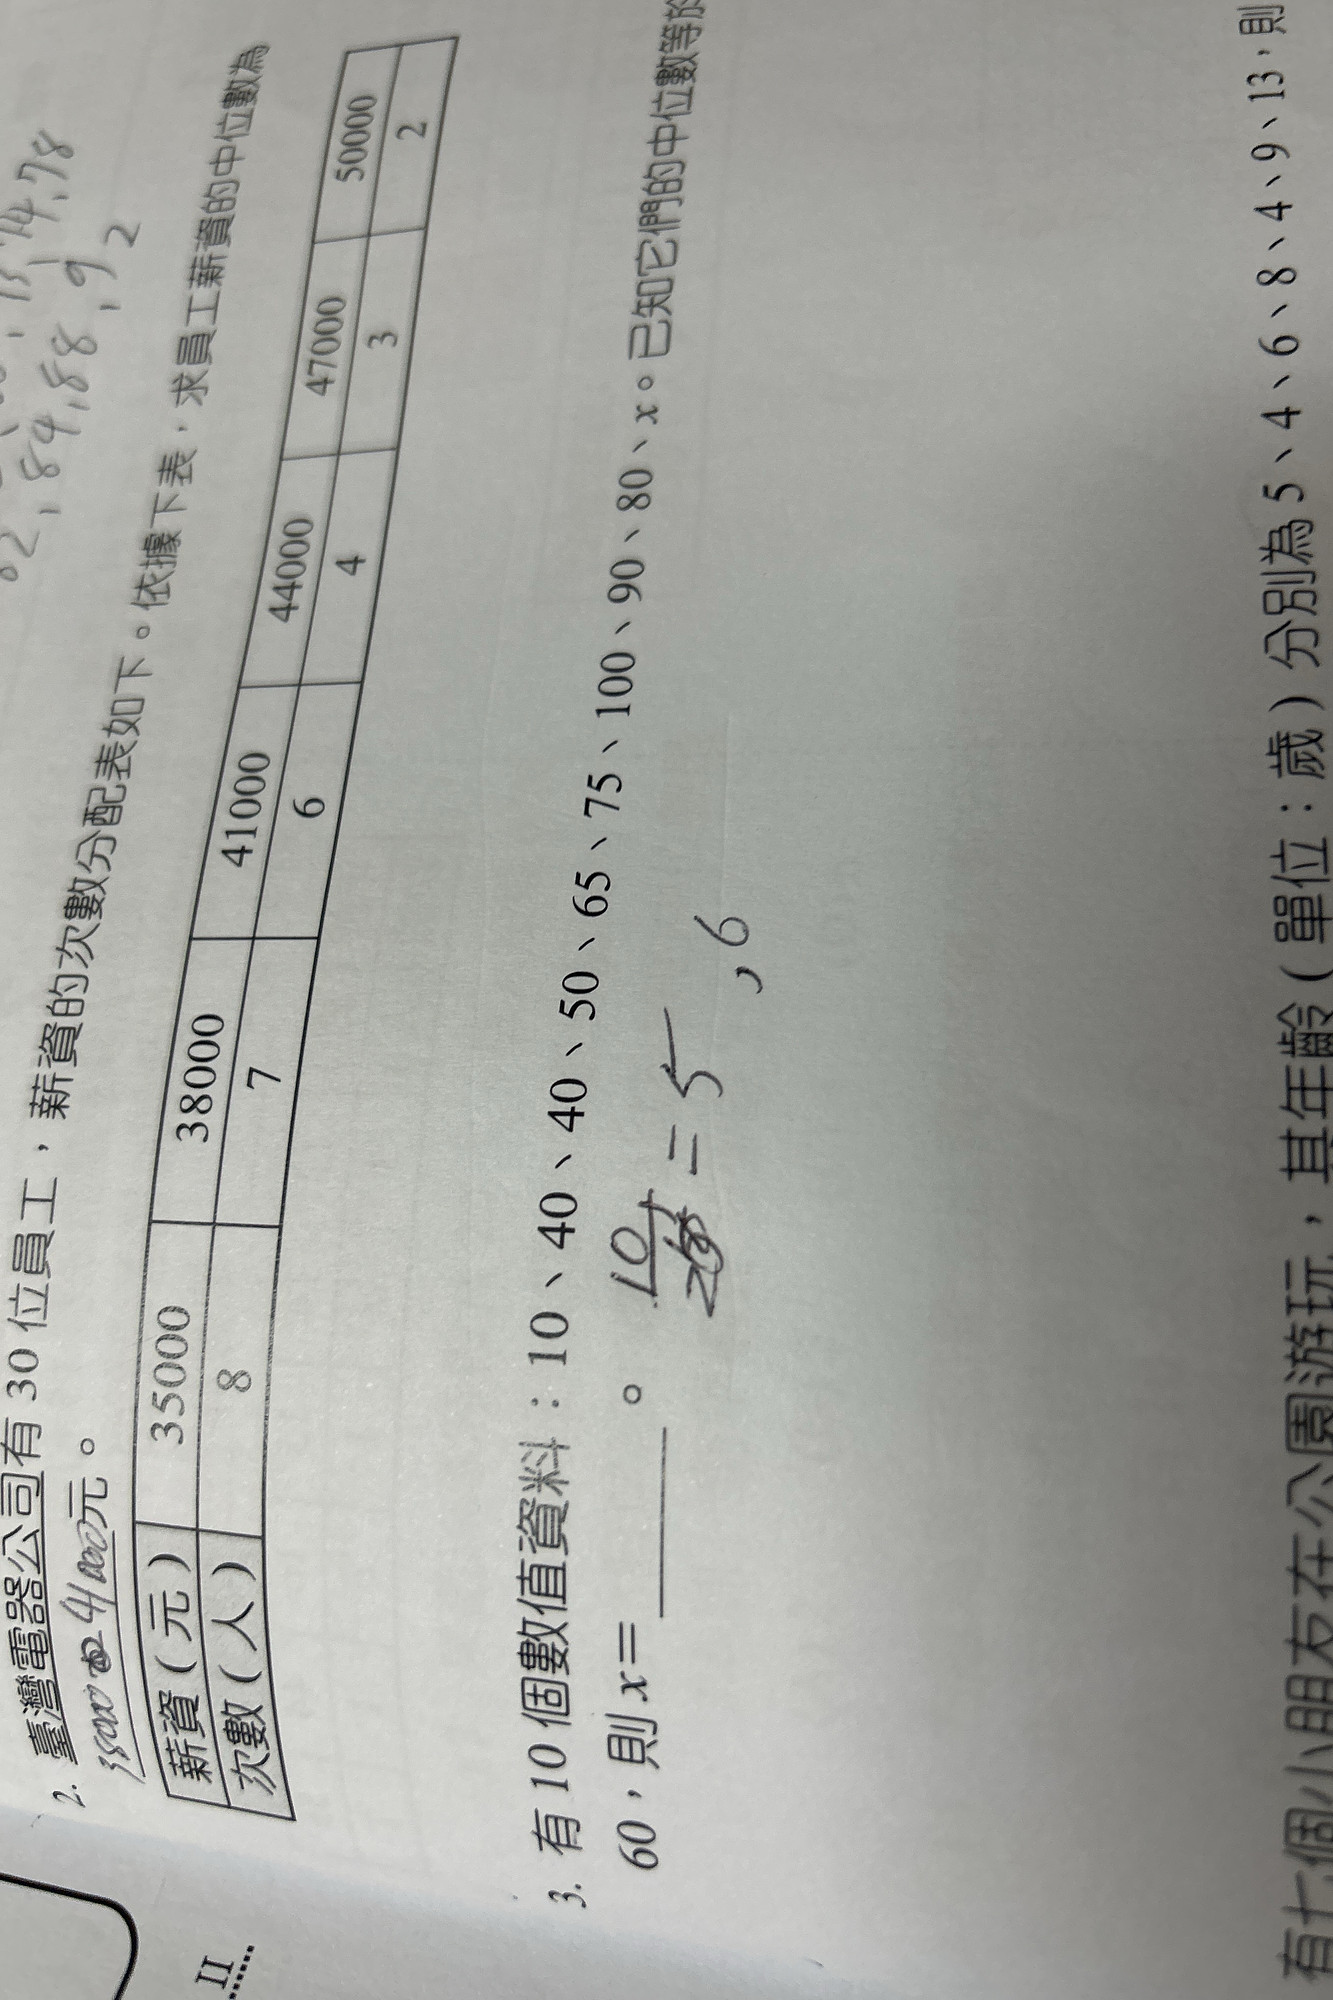 74,78
82,84,88,92
2. 臺灣電器公司有 30 位員工,薪資的次數分配表如下。依據下表,求員工薪資的中位數為
38000 41000元。
薪資(元) 35000 38000 41000 44000 47000 50000
次數(人) 8 7 6 4 3 2
3. 有 10 個數值資料:10、40、40、50、65、75、100、90、80、x。已知它們的中位數等於
60,則 x=______。 10/2=5,6
有七個小朋友在公園遊玩,其年齡(單位:歲)分別為 5、4、6、8、4、9、13,則
II